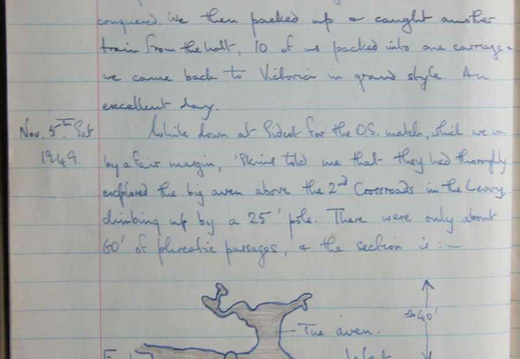 conquered. We then packed up & caught another
train from the halt, 10 of us packed into one carriage &
we came back to Victoria in grand style. An
excellent day.
Nov. 5th. Sat While down at Sidcot for the O.S. match, which we won
1949. by a fair margin, 'Skins told me that they had thoroughly
explored the big aven above the 2nd Crossroads in the
climbing up by a 25' pole. There were only about
60' of phreatic passages, & the section is :—
40'
The aven.